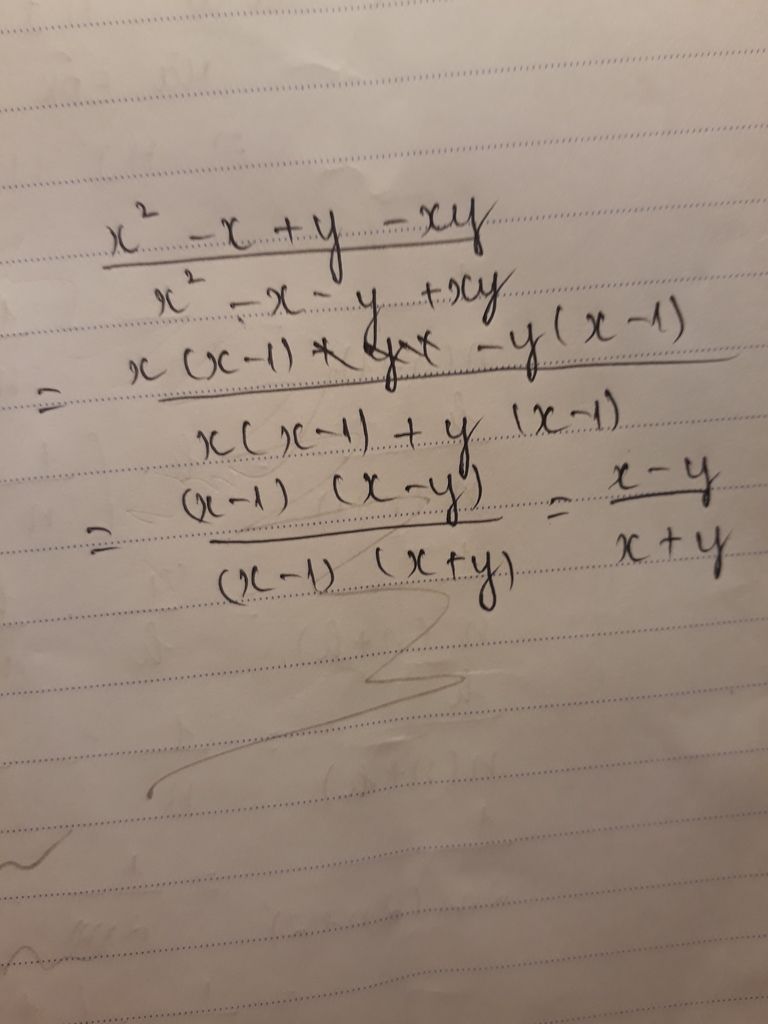 x² - x + y - xy
x² - x - y + xy
= x (x-1) - y (x-1)
x (x-1) + y (x-1)
= (x-1) (x-y) = x-y
(x-1) (x+y) x+y